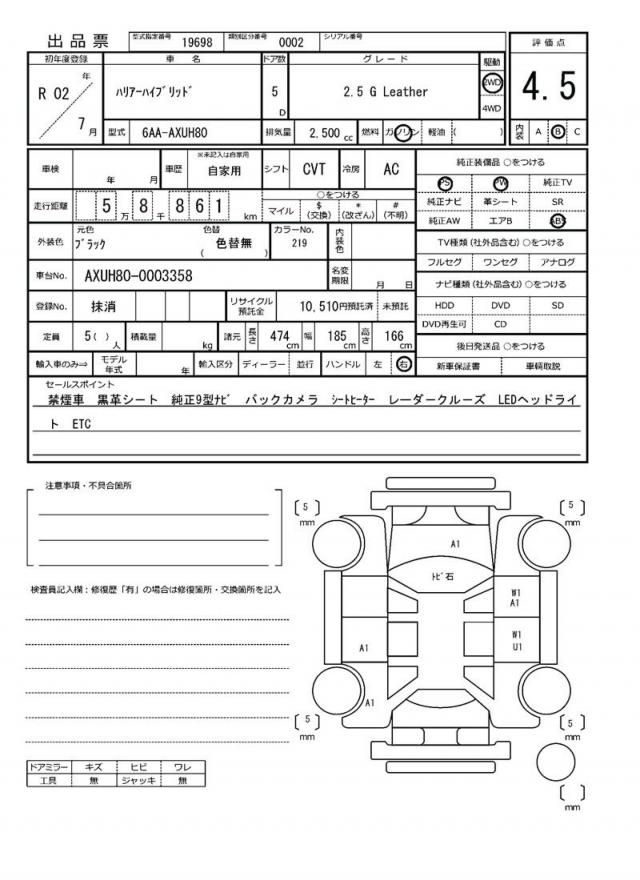 出品票 型式指定番号 19698 類別区分番号 0002 シリアル番号
初年度登録 車名 ドア数 グレード 駆動 評価点
R 02 年 7 月 ハリアーハイブリッド 5 D 2.5 G Leather 2WD 4WD 4.5
型式 6AA-AXUH80 排気量 2,500 cc 燃料 ガソリン 軽油 ( ) 内装 A B C
車検 年 月 車歴 ※未記入は自家用 自家用 シフト CVT 冷房 AC
走行距離 5 万 8 千 8 6 1 km ○をつける マイル $ (交換) * (改ざん) # (不明)
外装色 元色 ブラック 色替 ( 色替無 ) カラーNo. 219 内装色
車台No. AXUH80-0003358 名変期限 月 日
登録No. 抹消 リサイクル預託金 10,510円預託済 未預託
定員 5( ) 人 積載量 kg 諸元 長さ 474 cm 幅 185 cm 高さ 166 cm
輸入車のみ⇒ モデル年式 年 輸入区分 ディーラー 並行 ハンドル 左 右
純正装備品 ○をつける
PS PW 純正TV
純正ナビ 革シート SR
純正AW エアB ABS
TV種類 (社外品含む) ○をつける
フルセグ ワンセグ アナログ
ナビ種類 (社外品含む) ○をつける
HDD DVD SD
DVD再生可 CD
後日発送品 ○をつける
新車保証書 車輌取説
セールスポイント
禁煙車 黒革シート 純正9型ナビ バックカメラ シートヒーター レーダークルーズ LEDヘッドライ
ト ETC
注意事項・不具合箇所
検査員記入欄:修復歴「有」の場合は修復箇所・交換箇所を記入
[ 5 ] mm
[ 5 ] mm
A1
トビ石
W1
A1
W1
U1
A1
A1
[ 5 ] mm
[ 5 ] mm
[ ] mm
ドアミラー キズ ヒビ ワレ
工具 無 ジャッキ 無